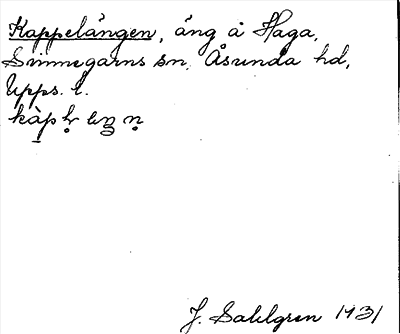 Kappelängen, äng å Haga,
Svinnegarns sn. Åsunda hd,
Upps. l.
J. Sahlgren 1931